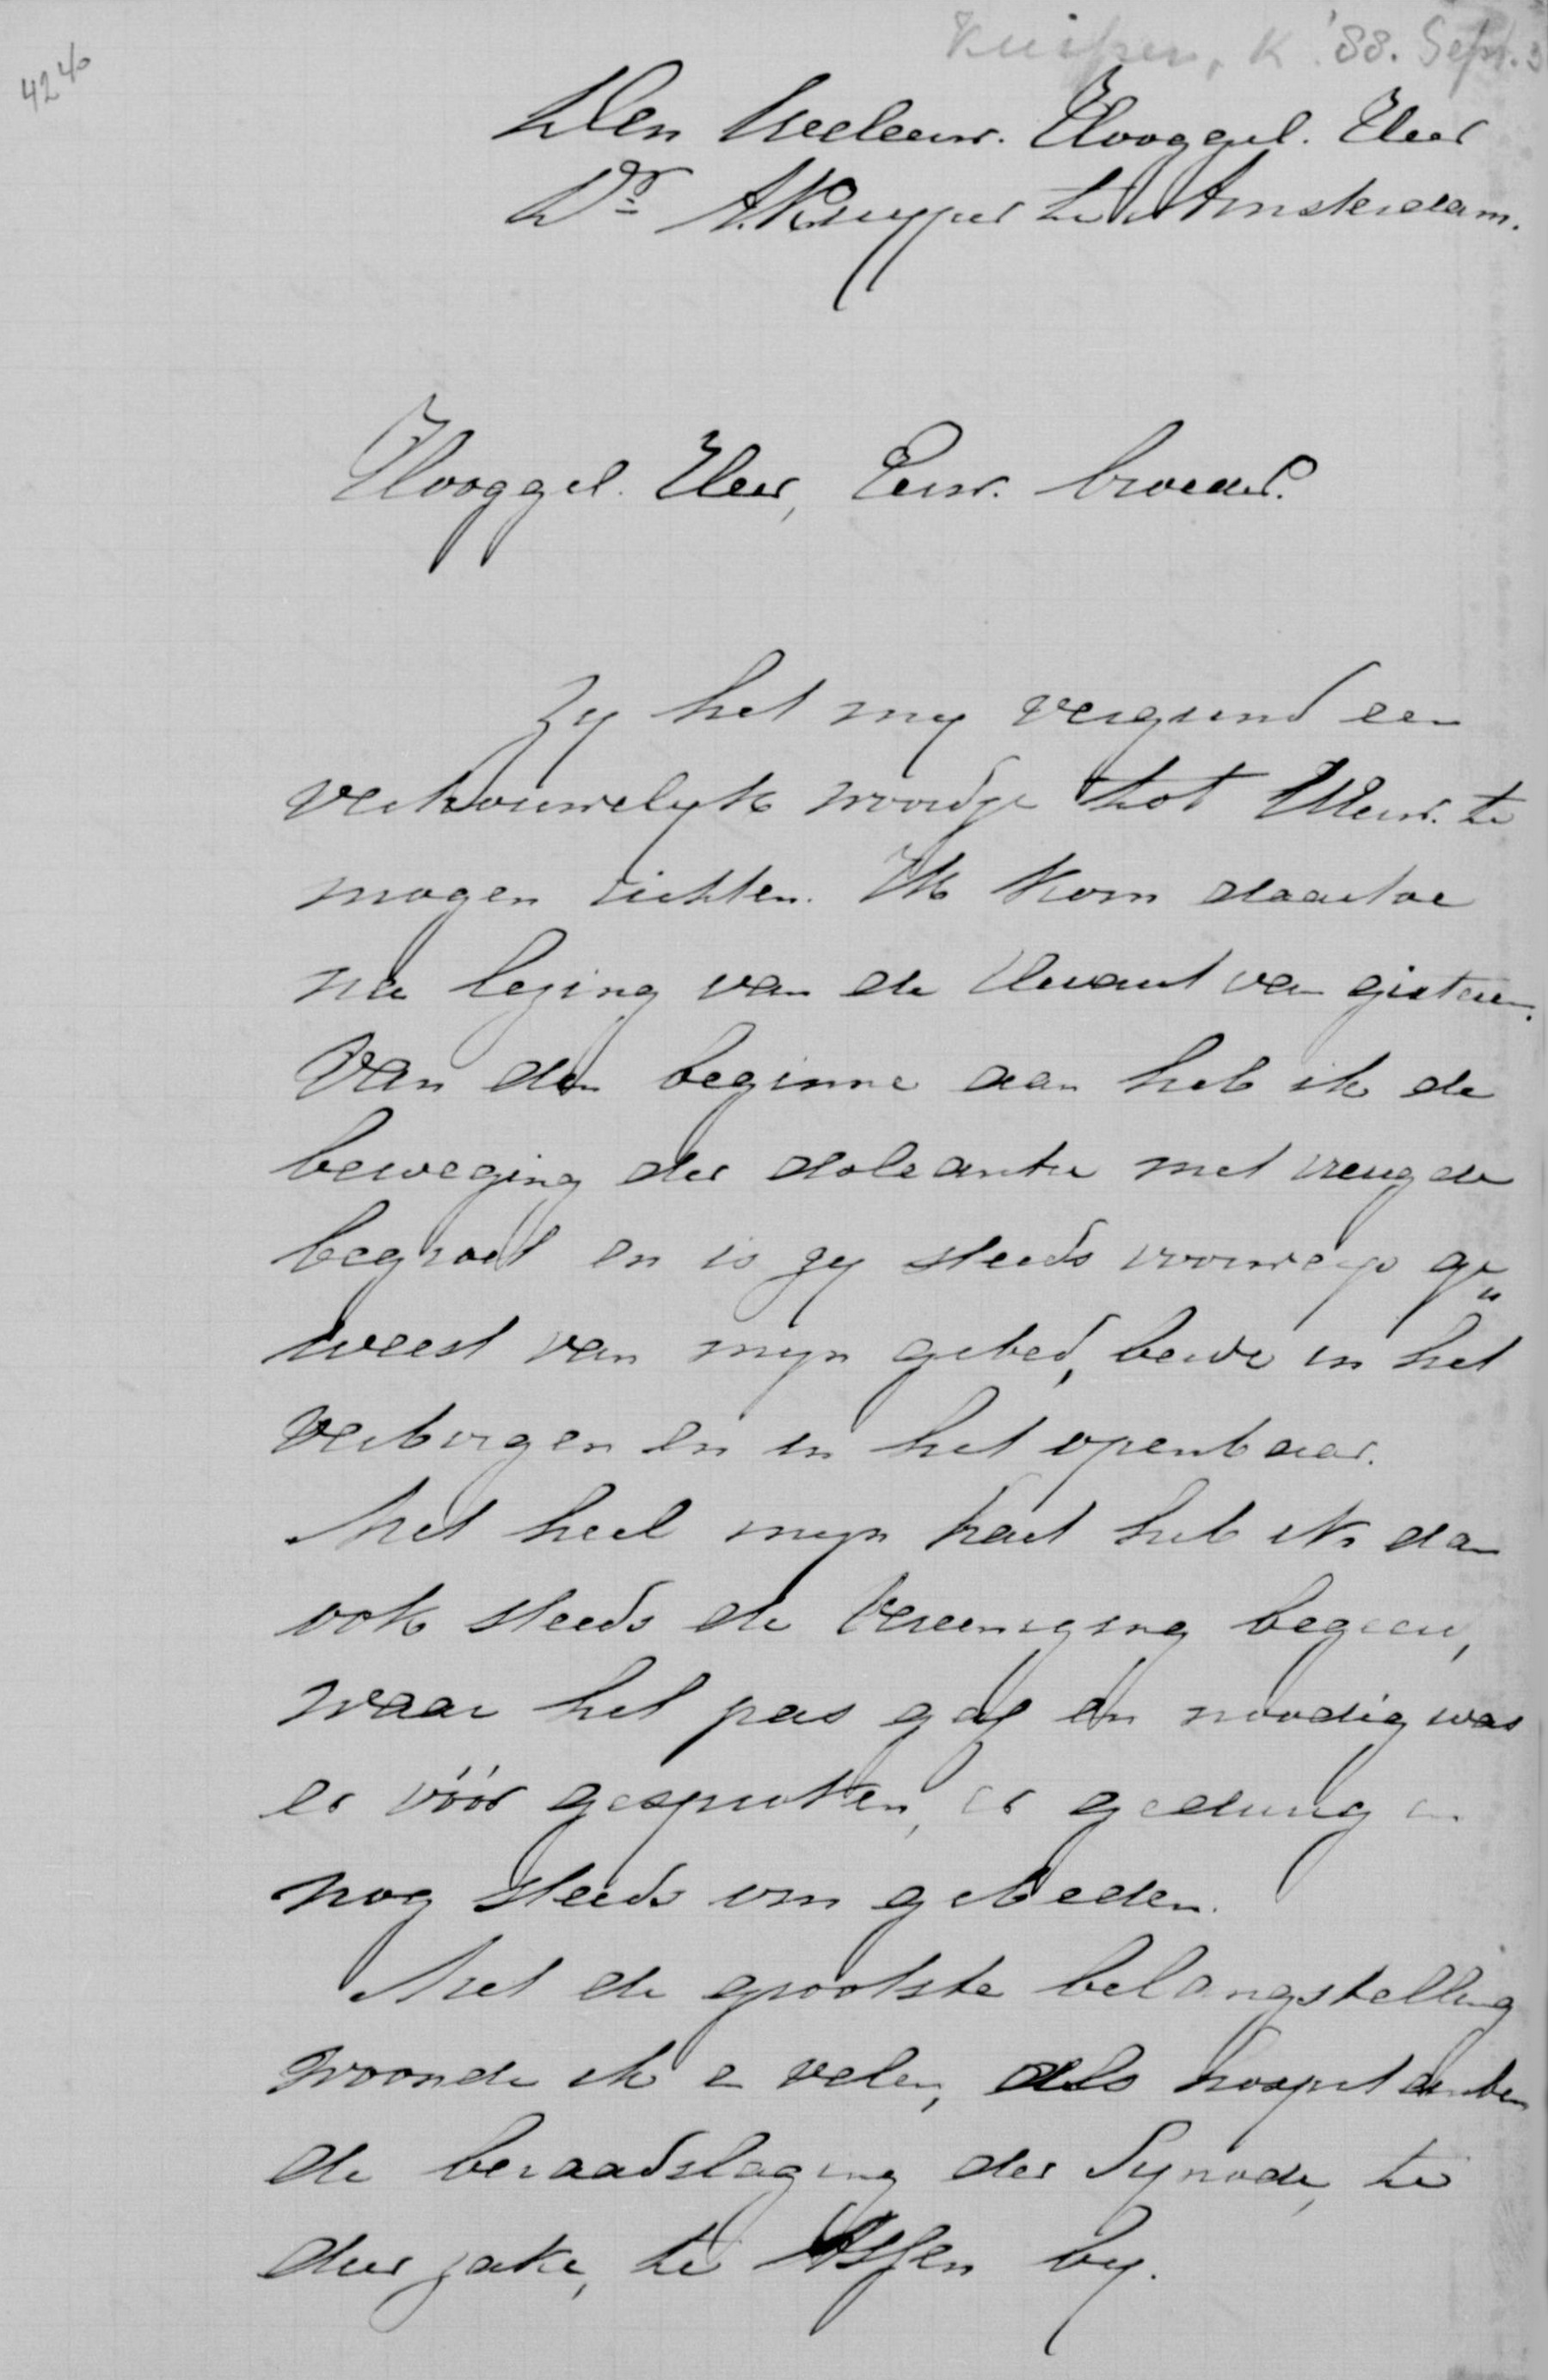 Kuiper, K. '88. Sept. 3
4240
Den Weleerw. Hooggel. Heer
Dr A. Kuyper te Amsterdam.
Hooggel. Heer, Eerw. broeder.
Zy het my vergund een
vertrouwelyk woordje tot UEerw. te
mogen richten. Ik kom daartoe
na lezing van de Heraut van gisteren.
Van den beginne aan heb ik de
beweging der doleantie met vreugde
begroet en is zy steeds voorwerp ge„
weest van myn gebed, beide in het
verborgen en in het openbaar.
Met heel myn hart heb ik dan
ook steeds de Vereeniging begeerd,
waar het pas gaf en noodig was
er vóór gesproken, er gedurig en
nog steeds om gebeden.
Met de grootste belangstelling
woonde ik en velen, als hospitanten
de beraadslaging der Synode, te
dier zake, te Assen by.